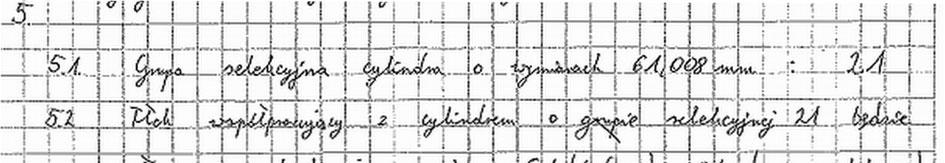 5
5.1. Grupa selekcyjna cylindra o wymiarach 61,008 mm : 2.1
5.2 Tłok współpracujący z cylindrem o grupie selekcyjnej 21 będzie